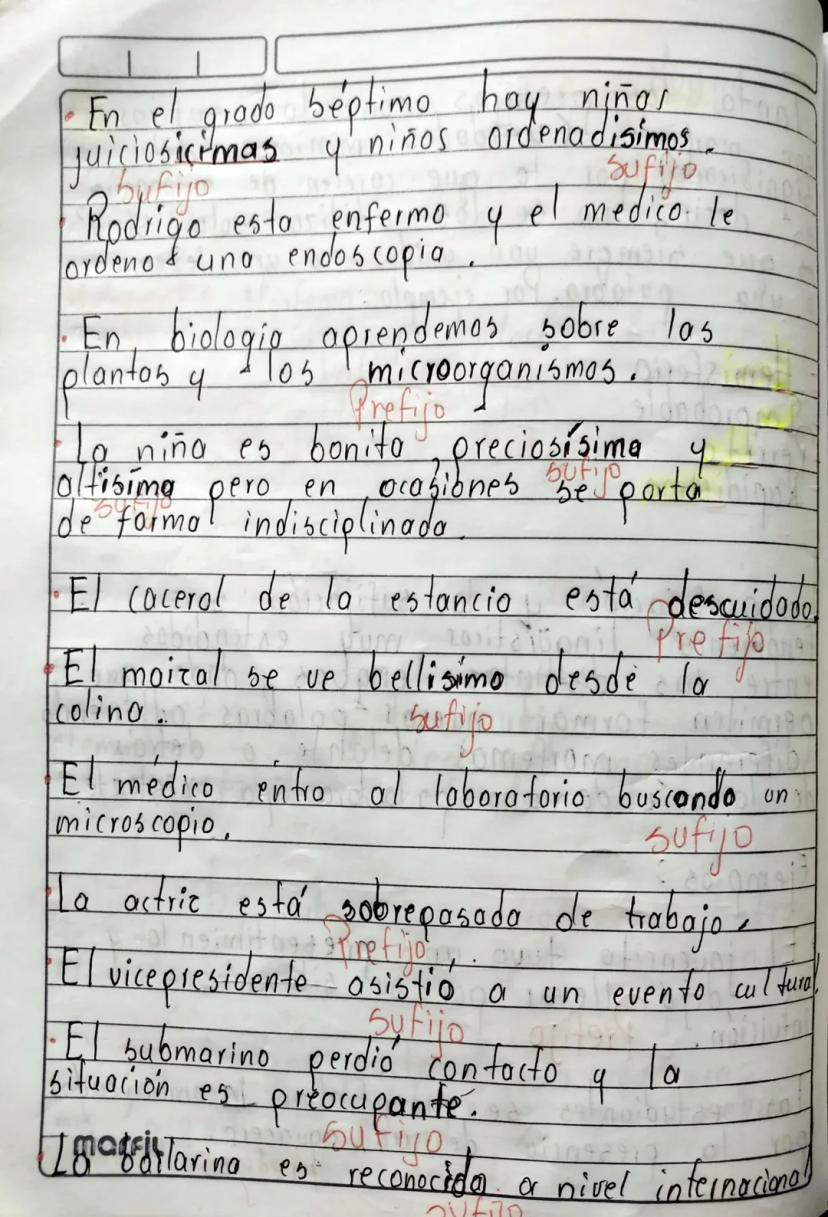 • En el grado séptimo hay niños
juiciosicimas y niños ordenadisimos.
sufijo sufijo
• Rodrigo esta enfermo y el medico le
ordeno una endoscopia.
• En biologia aprendemos sobre las
plantas y los microorganismos.
Prefijo
• La niña es bonita, preciosísima y
altisima pero en ocasiones se porta
sufijo sufijo
de forma indisciplinada.
• El cacerol de la estancia está descuidado.
Prefijo
• El moizal se ve bellisimo desde la
colina. sufijo
• El médico entro al laboratorio buscando un
microscopio. sufijo
• La actriz está sobrepasada de trabajo.
Prefijo
• El vicepresidente asistió a un evento cultural.
sufijo
• El submarino perdió contacto y la
situación es preocupante.
sufijo
La bailarina es reconocida a nivel internacional
sufijo